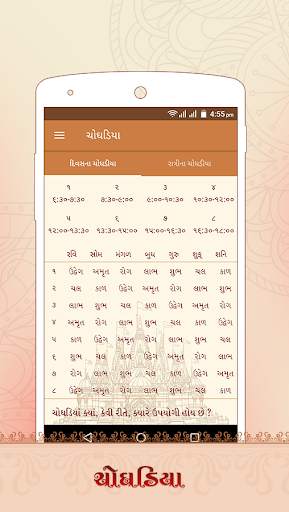 4:55 pm
ચોઘડિયા
દિવસના ચોઘડીયા રાત્રીના ચોઘડીયા
૧ ૨ ૩ ૪
૬:૩૦-૭:૩૦ ૭:૩૦-૯:૦૦ ૯:૦૦-૧૦:૩૦ ૧૦:૩૦-૧૨:૦૦
૫ ૬ ૭ ૮
૧૨:૦૦-૧૩:૩૦ ૧૩:૩૦-૧૫:૦૦ ૧૫:૦૦-૧૬:૩૦ ૧૬:૩૦-૧૮:૦૦
રવિ સોમ મંગળ બુધ ગુરુ શુક્ર શનિ
૧ ઉદ્વેગ અમૃત રોગ લાભ શુભ ચલ કાળ
૨ ચલ કાળ ઉદ્વેગ અમૃત રોગ લાભ શુભ
૩ લાભ શુભ ચલ કાળ ઉદ્વેગ અમૃત રોગ
૪ અમૃત રોગ લાભ શુભ ચલ કાળ ઉદ્વેગ
૫ કાળ ઉદ્વેગ અમૃત રોગ લાભ શુભ ચલ
૬ શુભ ચલ કાળ ઉદ્વેગ અમૃત રોગ લાભ
૭ રોગ લાભ શુભ ચલ કાળ ઉદ્વેગ અમૃત
૮ ઉદ્વેગ અમૃત રોગ લાભ શુભ ચલ કાળ
ચોઘડિયાં ક્યાં, કેવી રીતે, ક્યારે ઉપયોગી હોય છે ?
ચોઘડિયા